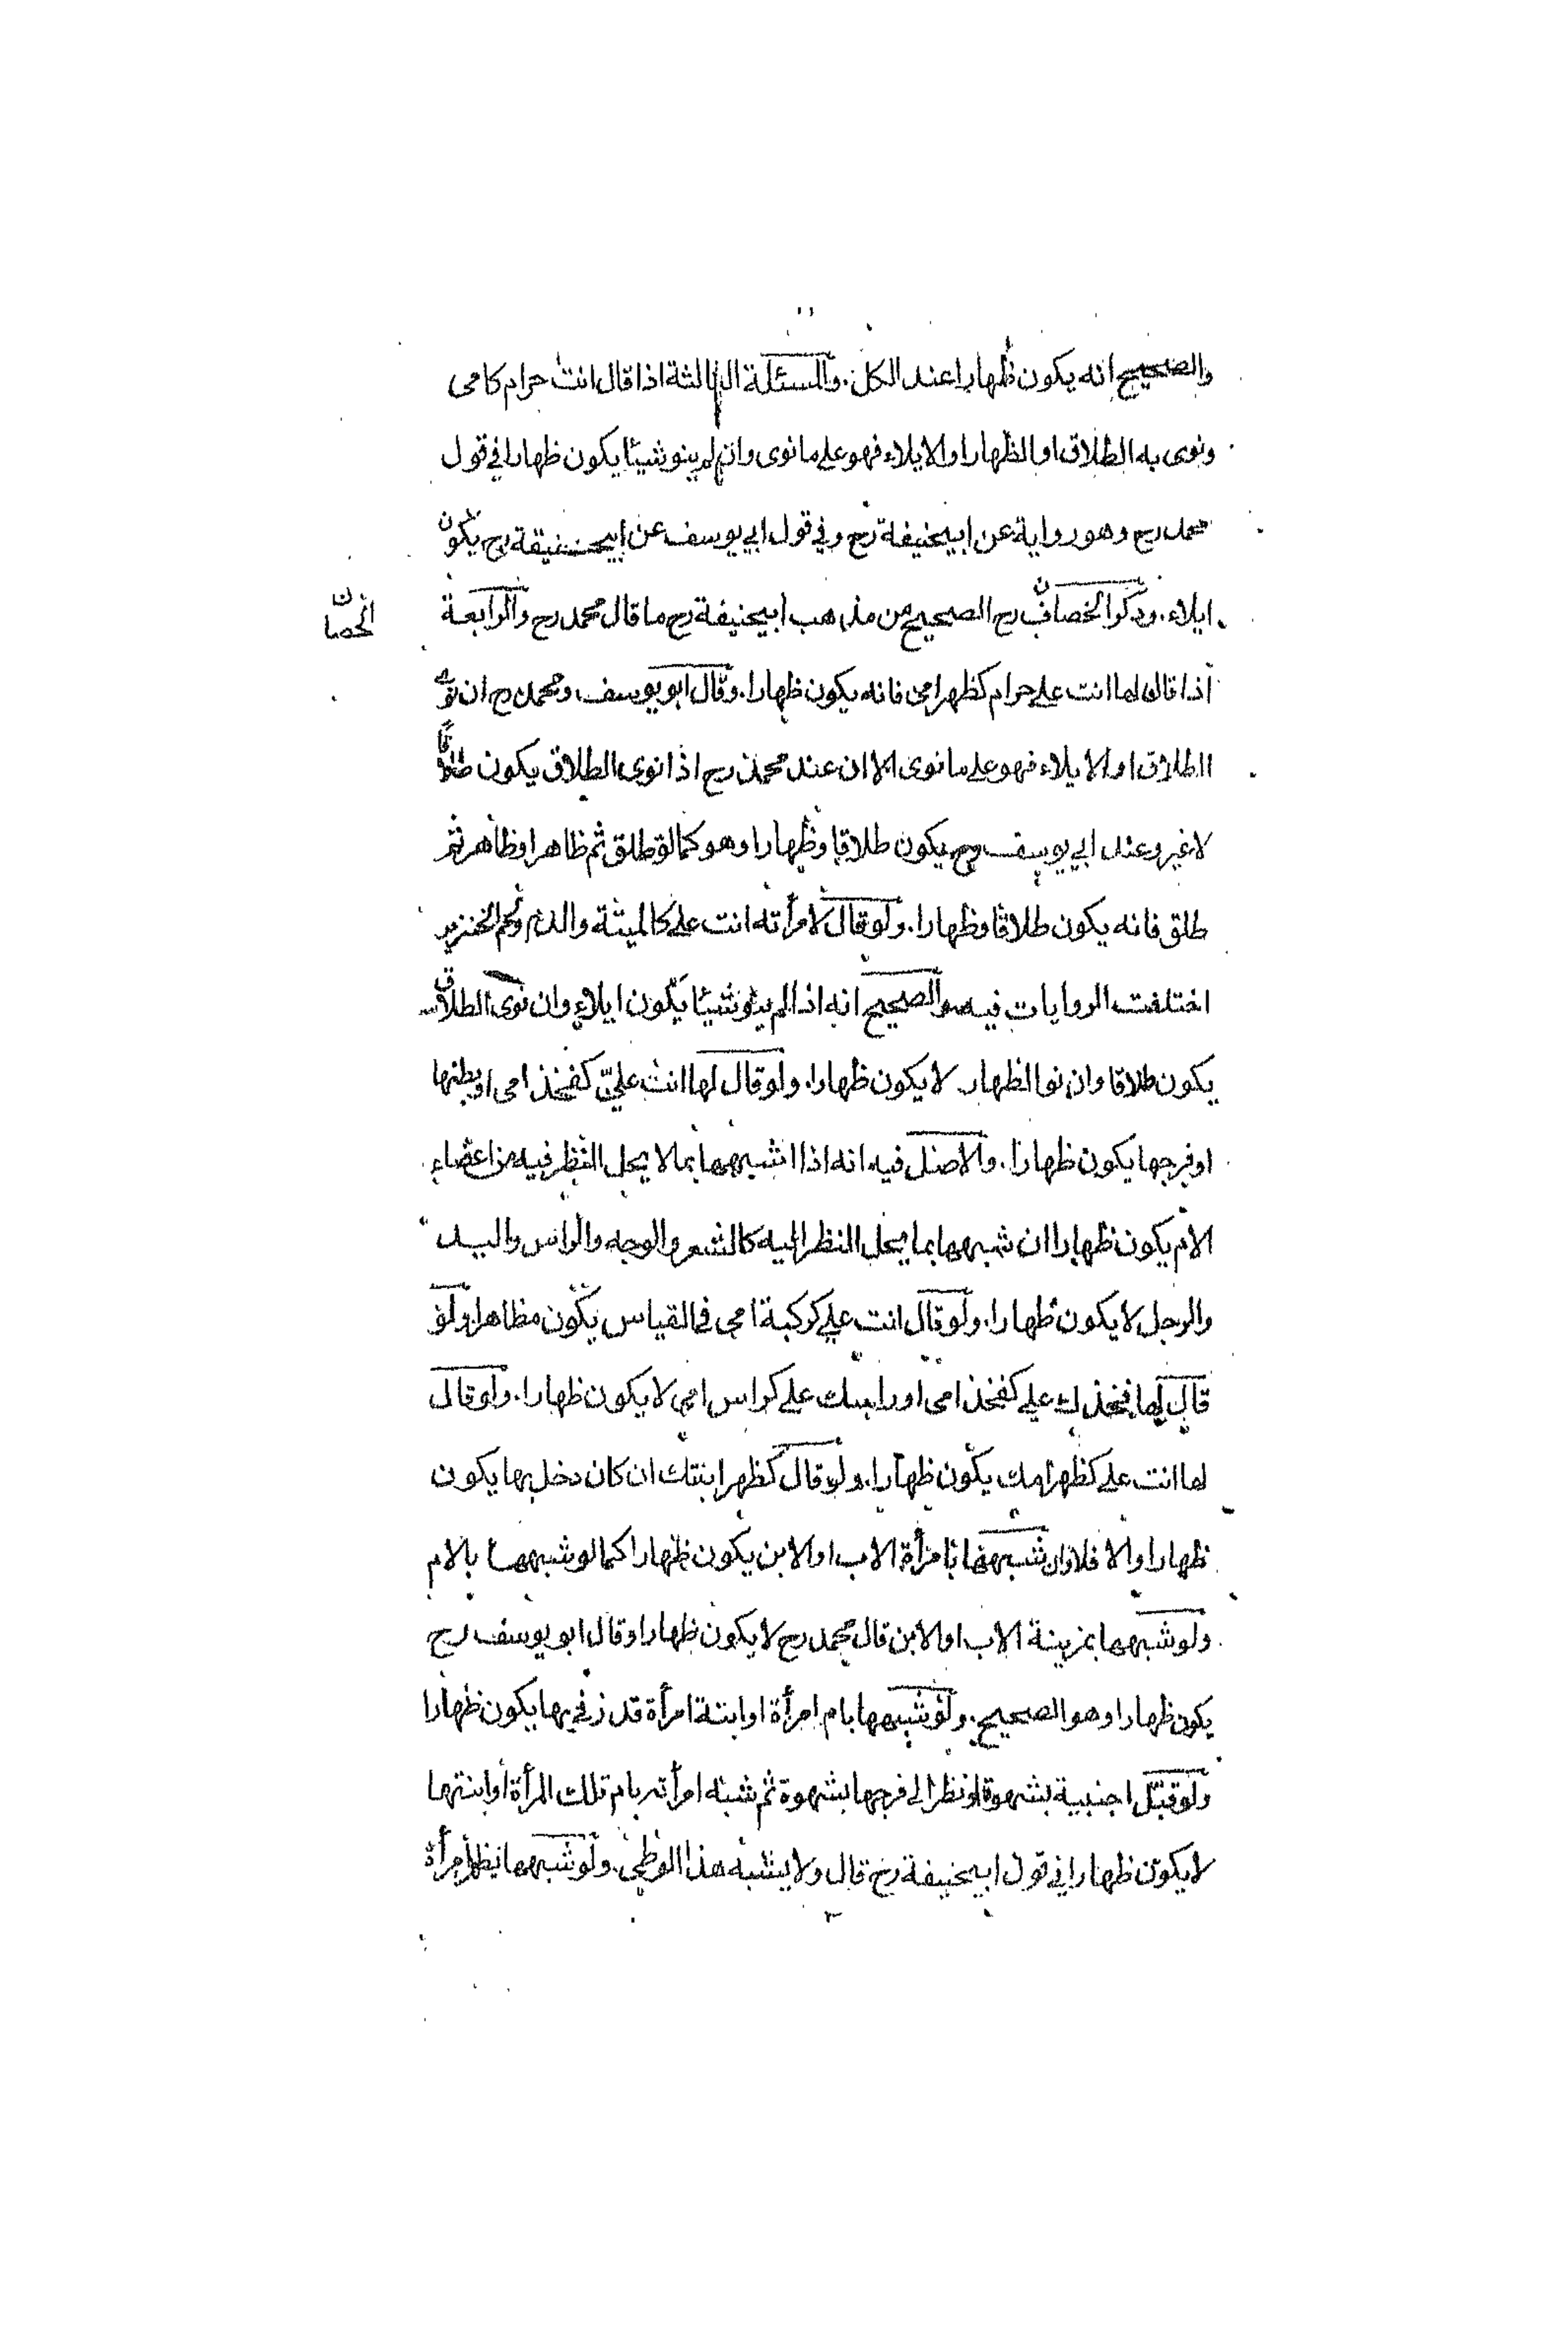 والصحيح انه يكون ظهارا عند الكل. والمسئلة الثالثة اذا قال انت حرام كامى
ونوى به الطلاق او الظهار او الايلاء فهو على ما نوى وان لم ينو شيئا يكون ظهارا فى قول
محمد رح وهو رواية عن ابيحنيفة رح وفى قول ابى يوسف عن ابيحنيفة رح يكون
ايلاء. وذكر الخصاف رح الصحيح من مذهب ابيحنيفة رح ما قال محمد رح والرابعة
الخصاف
اذا قال لها انت على حرام كظهر امى فانه يكون ظهارا. وقال ابو يوسف ومحمد رح ان نوى
الطلاق او الايلاء فهو على ما نوى الا ان عند محمد رح اذا نوى الطلاق يكون طلاقا
لا غير وعند ابى يوسف رح يكون طلاقا وظهارا وهو كما لو طلق ثم ظاهر او ظاهر ثم
طلق فانه يكون طلاقا وظهارا. ولو قال لامرأته انت على كالميتة والدم ولحم الخنزير
اختلفت الروايات فيه والصحيح انه اذا لم ينو شيئا يكون ايلاء وان نوى الطلاق
يكون طلاقا وان نوا الظهار لا يكون ظهارا. ولو قال لها انت علىّ كفخذ امى او بطنها
او فرجها يكون ظهارا. والاصل فيه انه اذا اشبهها بما لا يحل النظر فيه من اعضاء
الام يكون ظهارا ان شبهها بما يحل النظر اليه كالشعر والوجه والراس واليد
والرجل لا يكون ظهارا. ولو قال انت على كركبة امى فى القياس يكون مظاهرا. ولو
قال لها فخذك على كفخذ امى او راسك على كراس امى لا يكون ظهارا. ولو قال
لها انت على كظهر امك يكون ظهارا. ولو قال كظهر ابنتك ان كان دخل بها يكون
ظهارا والا فلا وان شبهها بامرأة الاب او الابن يكون ظهارا كما لو شبهها بالام
ولو شبهها بمزينة الاب او الابن قال محمد رح لا يكون ظهارا وقال ابو يوسف رح
يكون ظهارا وهو الصحيح. ولو شبهها بام امرأة او ابنة امرأة قد زنى بها يكون ظهارا
ولو قبّل اجنبية بشهوة او نظر الى فرجها بشهوة ثم شبه امرأته بام تلك المرأة او ابنتها
لا يكون ظهارا فى قول ابيحنيفة رح قال ولا يشبه هذا الوطى. ولو شبهها بظهر امرأة